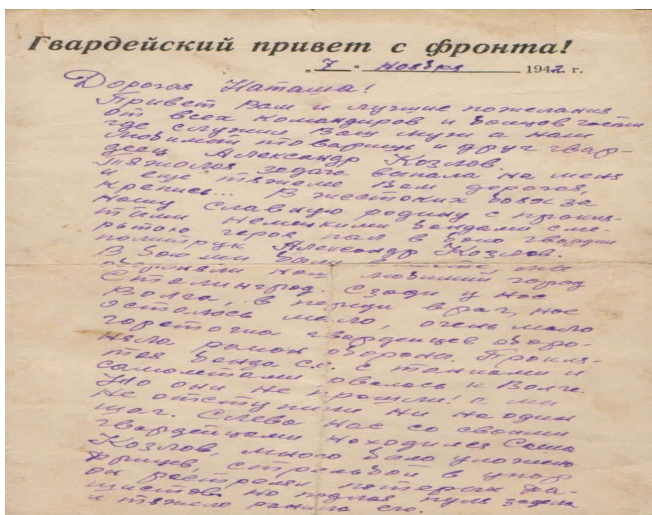 Гвардейский привет с фронта!
"7" ноября 1942 г.
Дорогая Наташа!
Привет Вам и лучшие пожелания
от всех командиров и бойцов части
где служил Ваш муж а наш
любимый товарищ и друг гвар-
деец Александр Козлов.
Тяжолоя задача выпала на меня
и еще тяжелее Вам дорогая,
крепись... В жестоких боях за
нашу славную родину с прокля-
тыми немецкими бандами сме-
ртью героя пал в бою гвардии
политрук Александр Козлов.
В бою мы были вместе, мы
обороняли наш любимый город
Сталинград. Сзади у нас
Волга, в переди враг, нас
осталось мало, очень мало
горсточка гвардейцев оборо-
няла район обороны. Прокля-
тая банда с.с. с танками и
самолетами рвалась к Волге.
Но они не прошли! а мы
не отступили ни на один
шаг. Слева нас со своими
гвардейцами находился Саша
Козлов, много было уложено
фрицев, стрельбой в упор
он расстрелял пятерых фа-
шистов но подлая пуля задела
и тяжело ранила его.